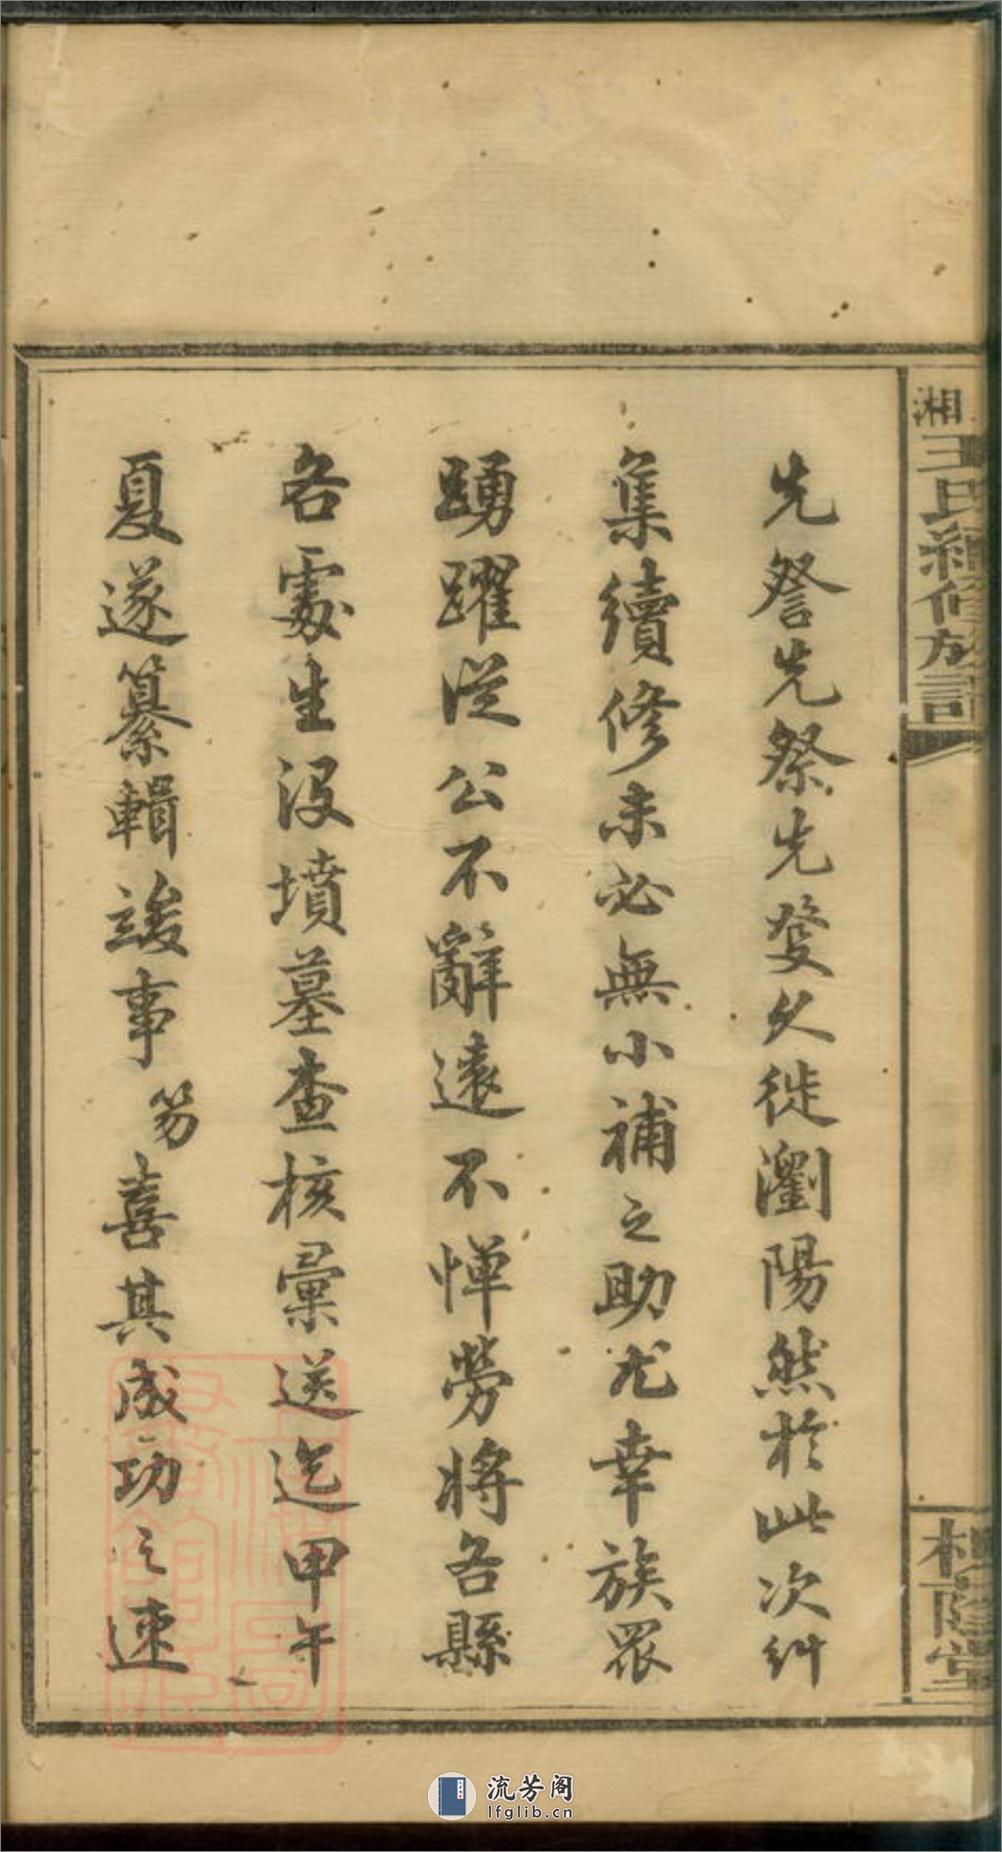 湘
王氏續修族譜
先詧先祭先發久徙瀏陽然於此次糾
集續修未必無小補之助尤幸族眾
踴躍從公不辭遠不憚勞將各縣
各處生沒墳墓查核彙送迄甲午
夏遂纂輯竣事笏喜其成功之速
流芳阁
lfglib.cn